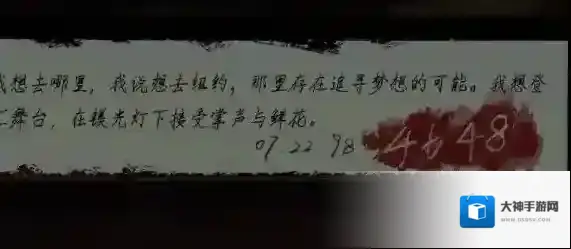 我想去哪里，我说想去纽约，那里存在追寻梦想的可能。我想登
上舞台，在镁光灯下接受掌声与鲜花。
07 22 98 4648
大神手游网